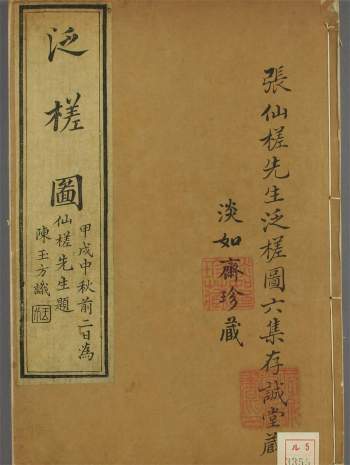 張仙槎先生泛槎圖六集存誠堂藏
淡如齋珍藏
泛槎圖
甲戌中秋前二日為
仙槎先生題
陳玉方識
ル5
3355